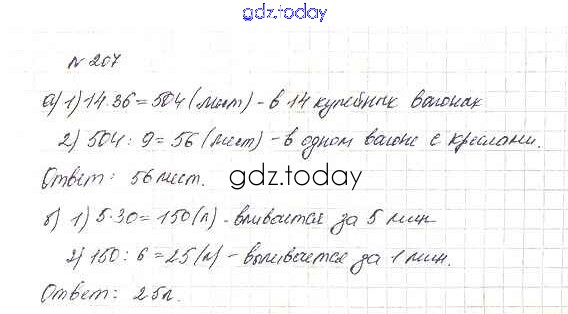 gdz.today
№ 207
а) 1) 14·36 = 504 (мест) - в 14 купейных вагонах
2) 504 : 9 = 56 (мест) - в одном вагоне с креслами.
Ответ: 56 мест.
gdz.today
б) 1) 5·30 = 150 (л) - вливается за 5 мин
2) 150 : 6 = 25 (л) - выливается за 1 мин.
Ответ: 25 л.